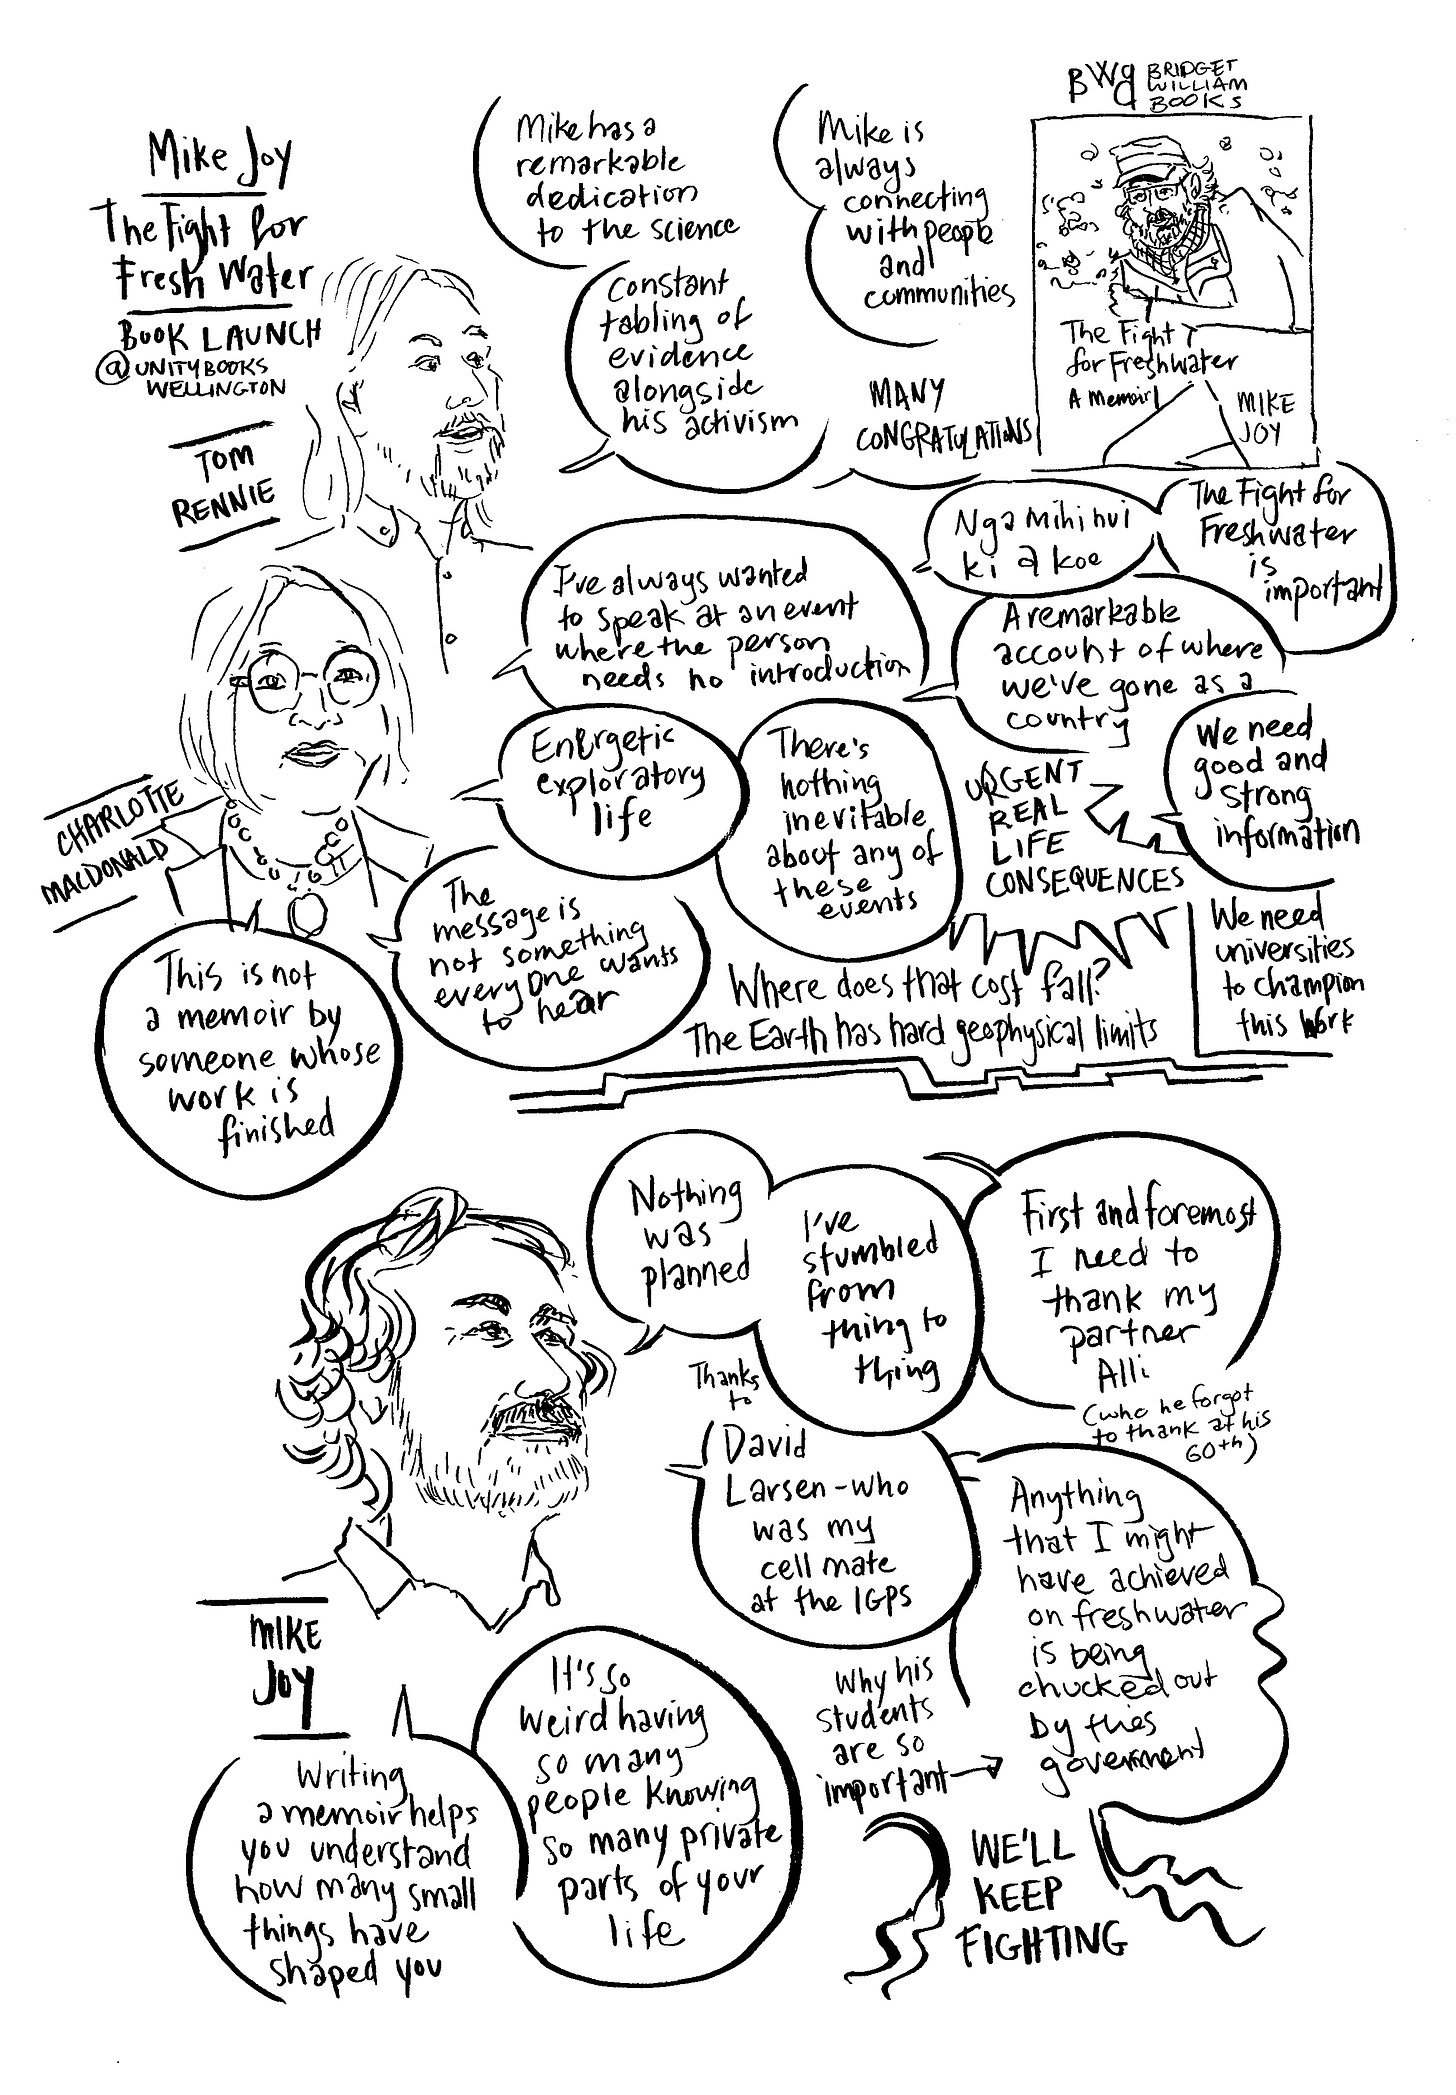 Mike Joy
The Fight for
Fresh Water
BOOK LAUNCH
@ UNITY BOOKS
WELLINGTON
TOM
RENNIE
Mike has a
remarkable
dedication
to the science
Constant
tabling of
evidence
alongside
his activism
Mike is
always
connecting
with people
and
communities
MANY
CONGRATULATIONS
BWB BRIDGET
WILLIAM
BOOKS
The Fight
for Freshwater
A Memoir
MIKE
JOY
CHARLOTTE
MACDONALD
I've always wanted
to speak at an event
where the person
needs no introduction
Nga mihi nui
ki a koe
The Fight for
Freshwater
is
important
A remarkable
account of where
we've gone as a
country
Energetic
exploratory
life
There's
nothing
inevitable
about any of
these
events
URGENT
REAL
LIFE
CONSEQUENCES
We need
good and
strong
information
The
message is
not something
everyone wants
to hear
This is not
a memoir by
someone whose
work is
finished
Where does that cost fall?
The Earth has hard geophysical limits
We need
universities
to champion
this work
MIKE
JOY
Nothing
was
planned
I've
stumbled
from
thing to
thing
First and foremost
I need to
thank my
partner
Alli
(who he forgot
to thank at his
60th)
Thanks
to
David
Larsen - who
was my
cell mate
at the IGPS
Anything
that I might
have achieved
on freshwater
is being
chucked out
by this
government
Why his
students
are so
important
It's so
weird having
so many
people knowing
so many private
parts of your
life
Writing
a memoir helps
you understand
how many small
things have
shaped you
WE'LL
KEEP
FIGHTING